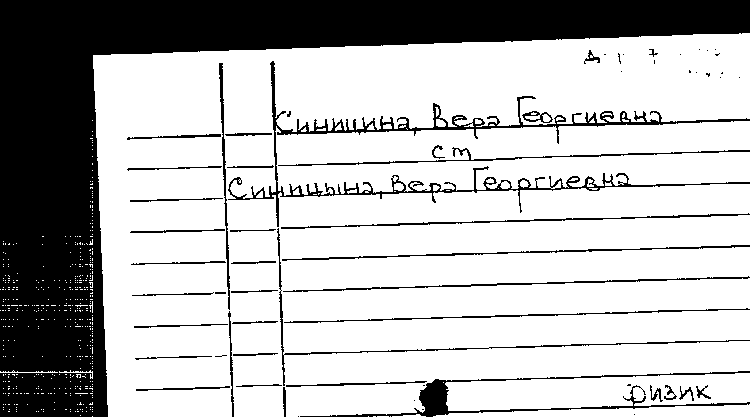 Синицина, Вера Георгиевна
ст
Синицына, Вера Георгиевна
физик